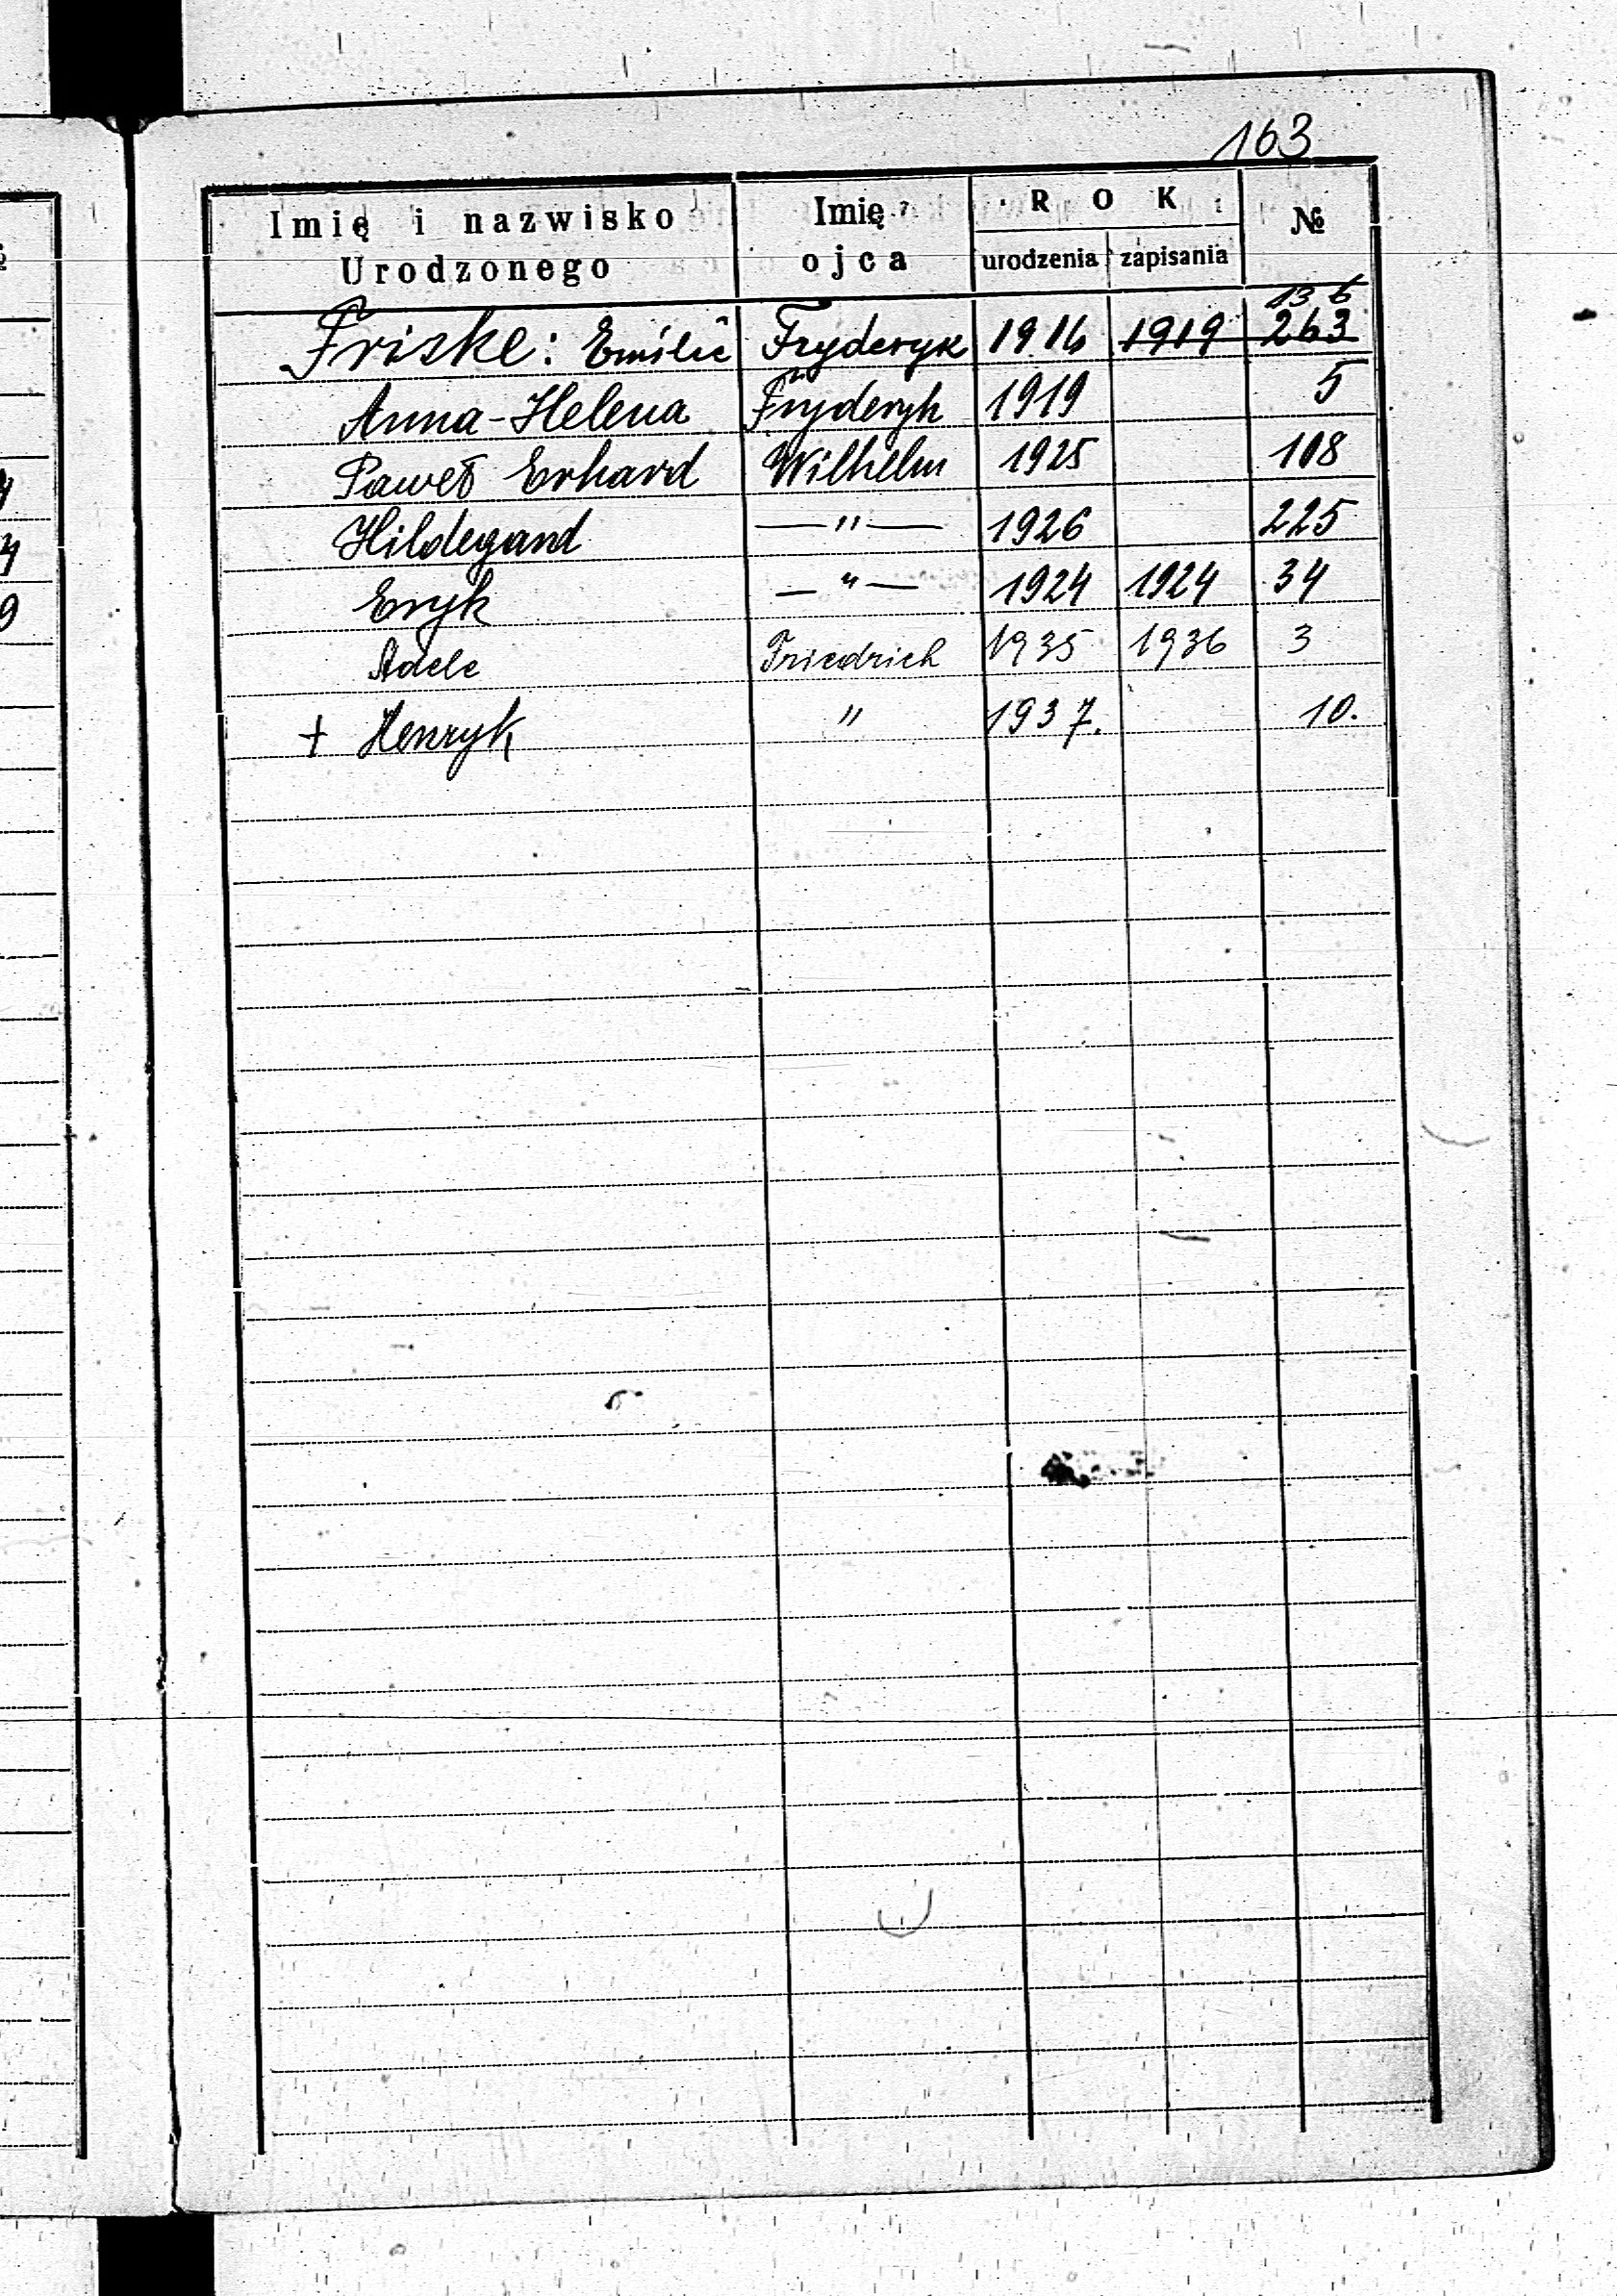 163
Imię i nazwisko Urodzonego Imię ojca ROK urodzenia zapisania №
13 6
Friske: Emilie Fryderyk 1916 1919 263
Anna-Helena Fryderyk 1919 5
Paweł Erhard Wilhelm 1925 108
Hildegard —"— 1926 225
Eryk —"— 1924 1924 34
Adele Friedrich 1935 1936 3
+ Henryk " 1937. 10.